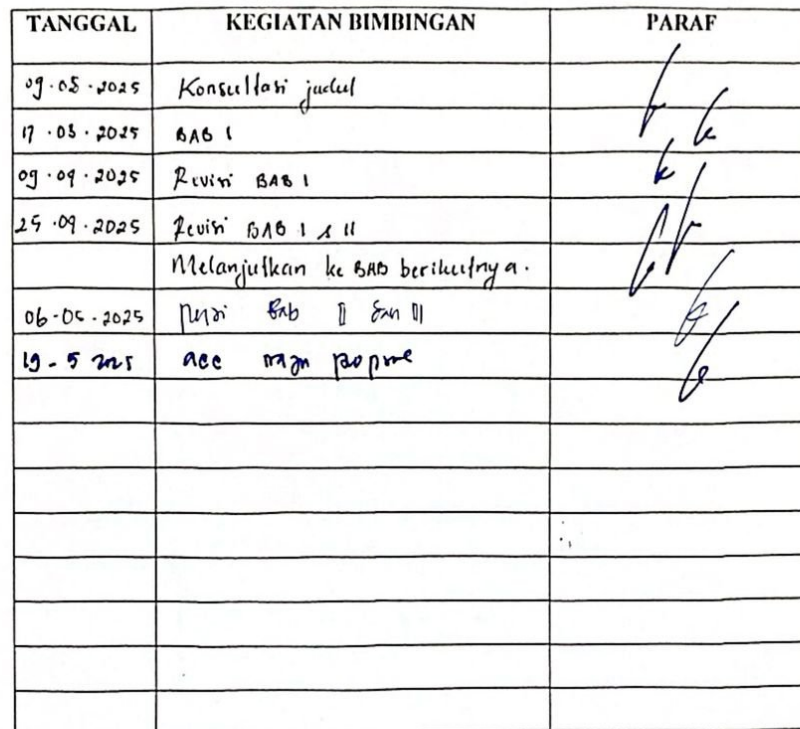 TANGGAL KEGIATAN BIMBINGAN PARAF
09.03.2025 Konsultasi judul
17.03.2025 BAB I
09.04.2025 Revisi BAB I
25.04.2025 Revisi BAB I & II
Melanjutkan ke BAB berikutnya.
06-05-2025 Bab II dan III
19-5 2025 acc